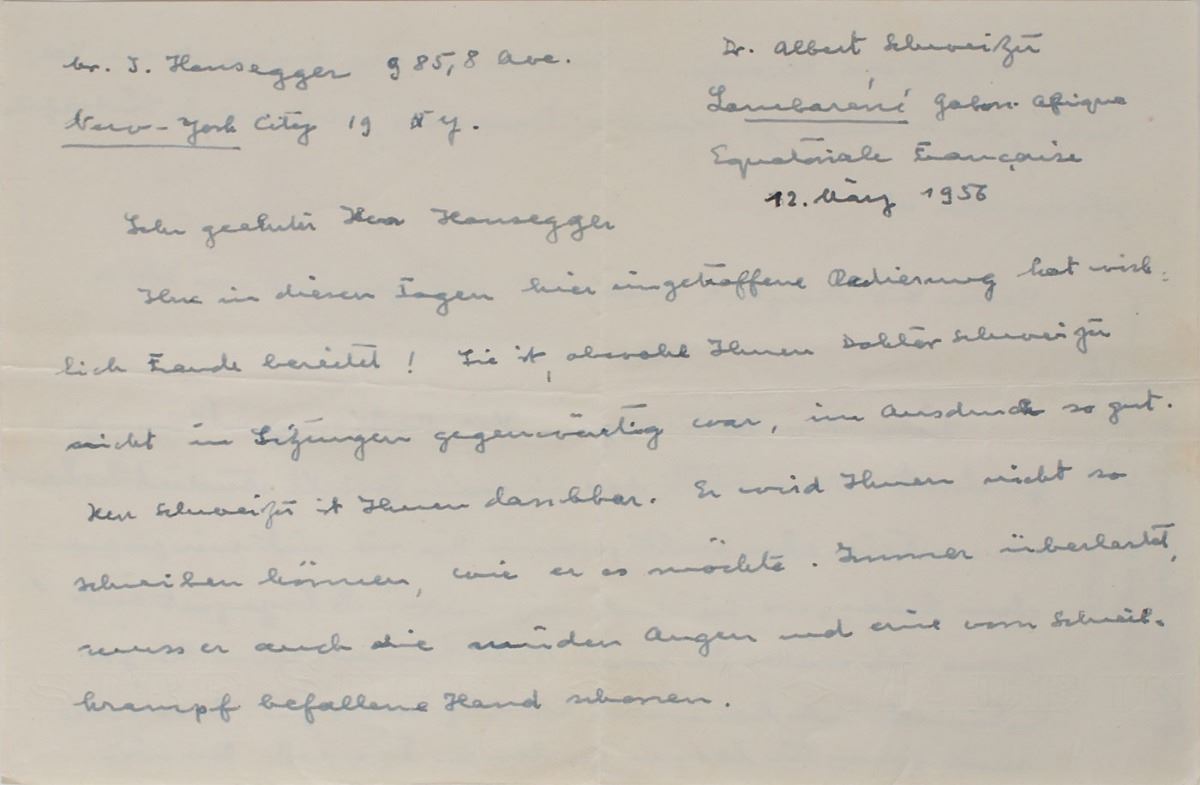 Mr. J. Hausegger 985, 8 Ave.
New-York City 19 N Y.
Dr. Albert Schweitzer
Lambaréné Gabon Afrique
Equatoriale Française
12. März 1956
Sehr geehrter Herr Hausegger
Ihre in diesen Tagen hier eingetroffene Radierung hat wirk-
lich Freude bereitet! Sie ist, obwohl Ihnen Doktor Schweitzer
nicht in Sitzungen gegenwärtig war, im Ausdruck so gut.
Herr Schweitzer ist Ihnen dankbar. Er wird Ihnen nicht so
schreiben können, wie er es möchte. Immer überlastet,
muss er auch die müden Augen und eine vom Schreib-
krampf befallene Hand schonen.